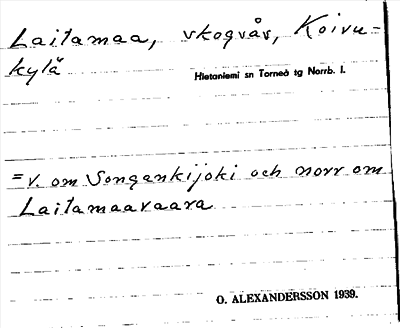 Laitamaa, skogvås, Koivu-
kylä
Hietaniemi sn Torneå tg Norrb. l.
= v. om Songankijoki och norr om
Laitamaavaara
O. ALEXANDERSSON 1939.